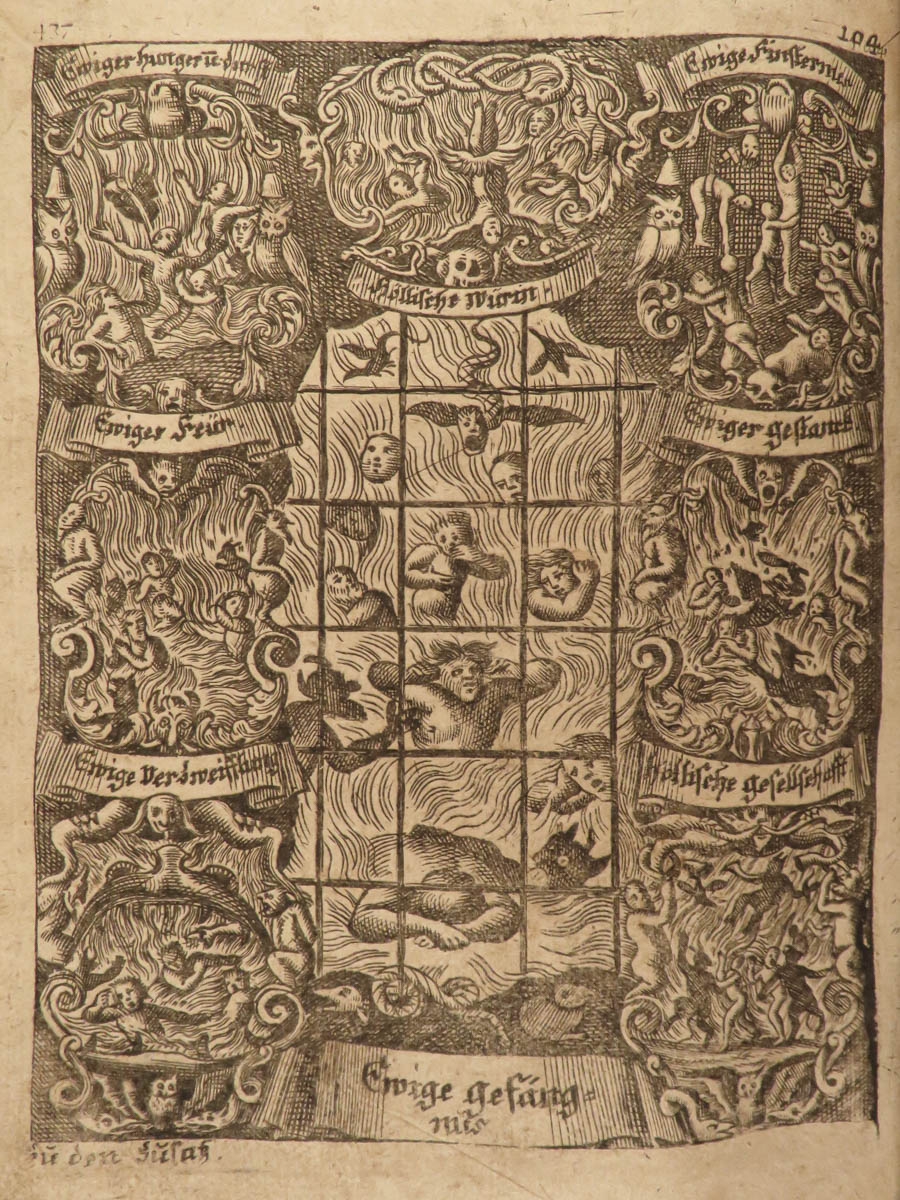 137
104
Ewiger hunger ū durst
Ewige Finsternus
Höllische Würm
Ewiges Feür
Ewiger gestanck
Ewige Verzweifflung
Höllische gesellschafft
Ewige gefäng=
nus
zu den Zusatz.